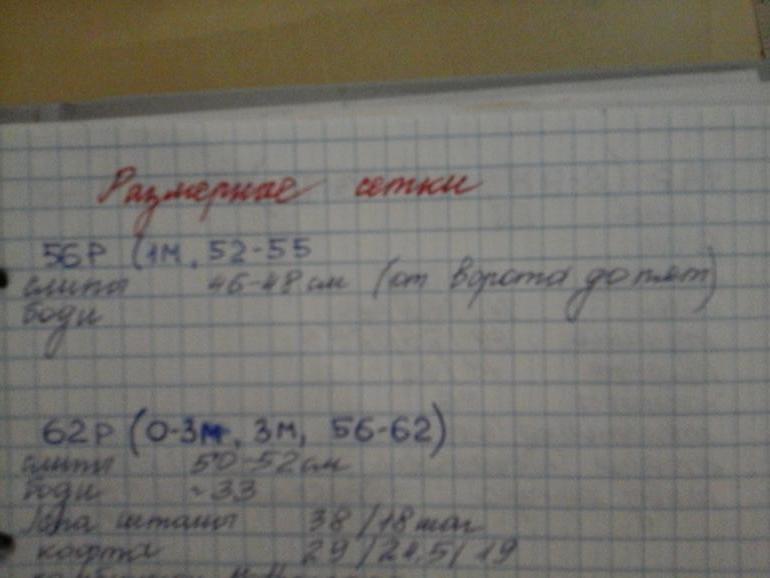 Размерные сетки
56Р (1М, 52-55
слипы 46-48 см (от ворота до пят)
боди
62Р (0-3М, 3М, 56-62)
слипы 50-52 см
боди ~33
штаны 38/18 шаг
кофта 29/24,5/19